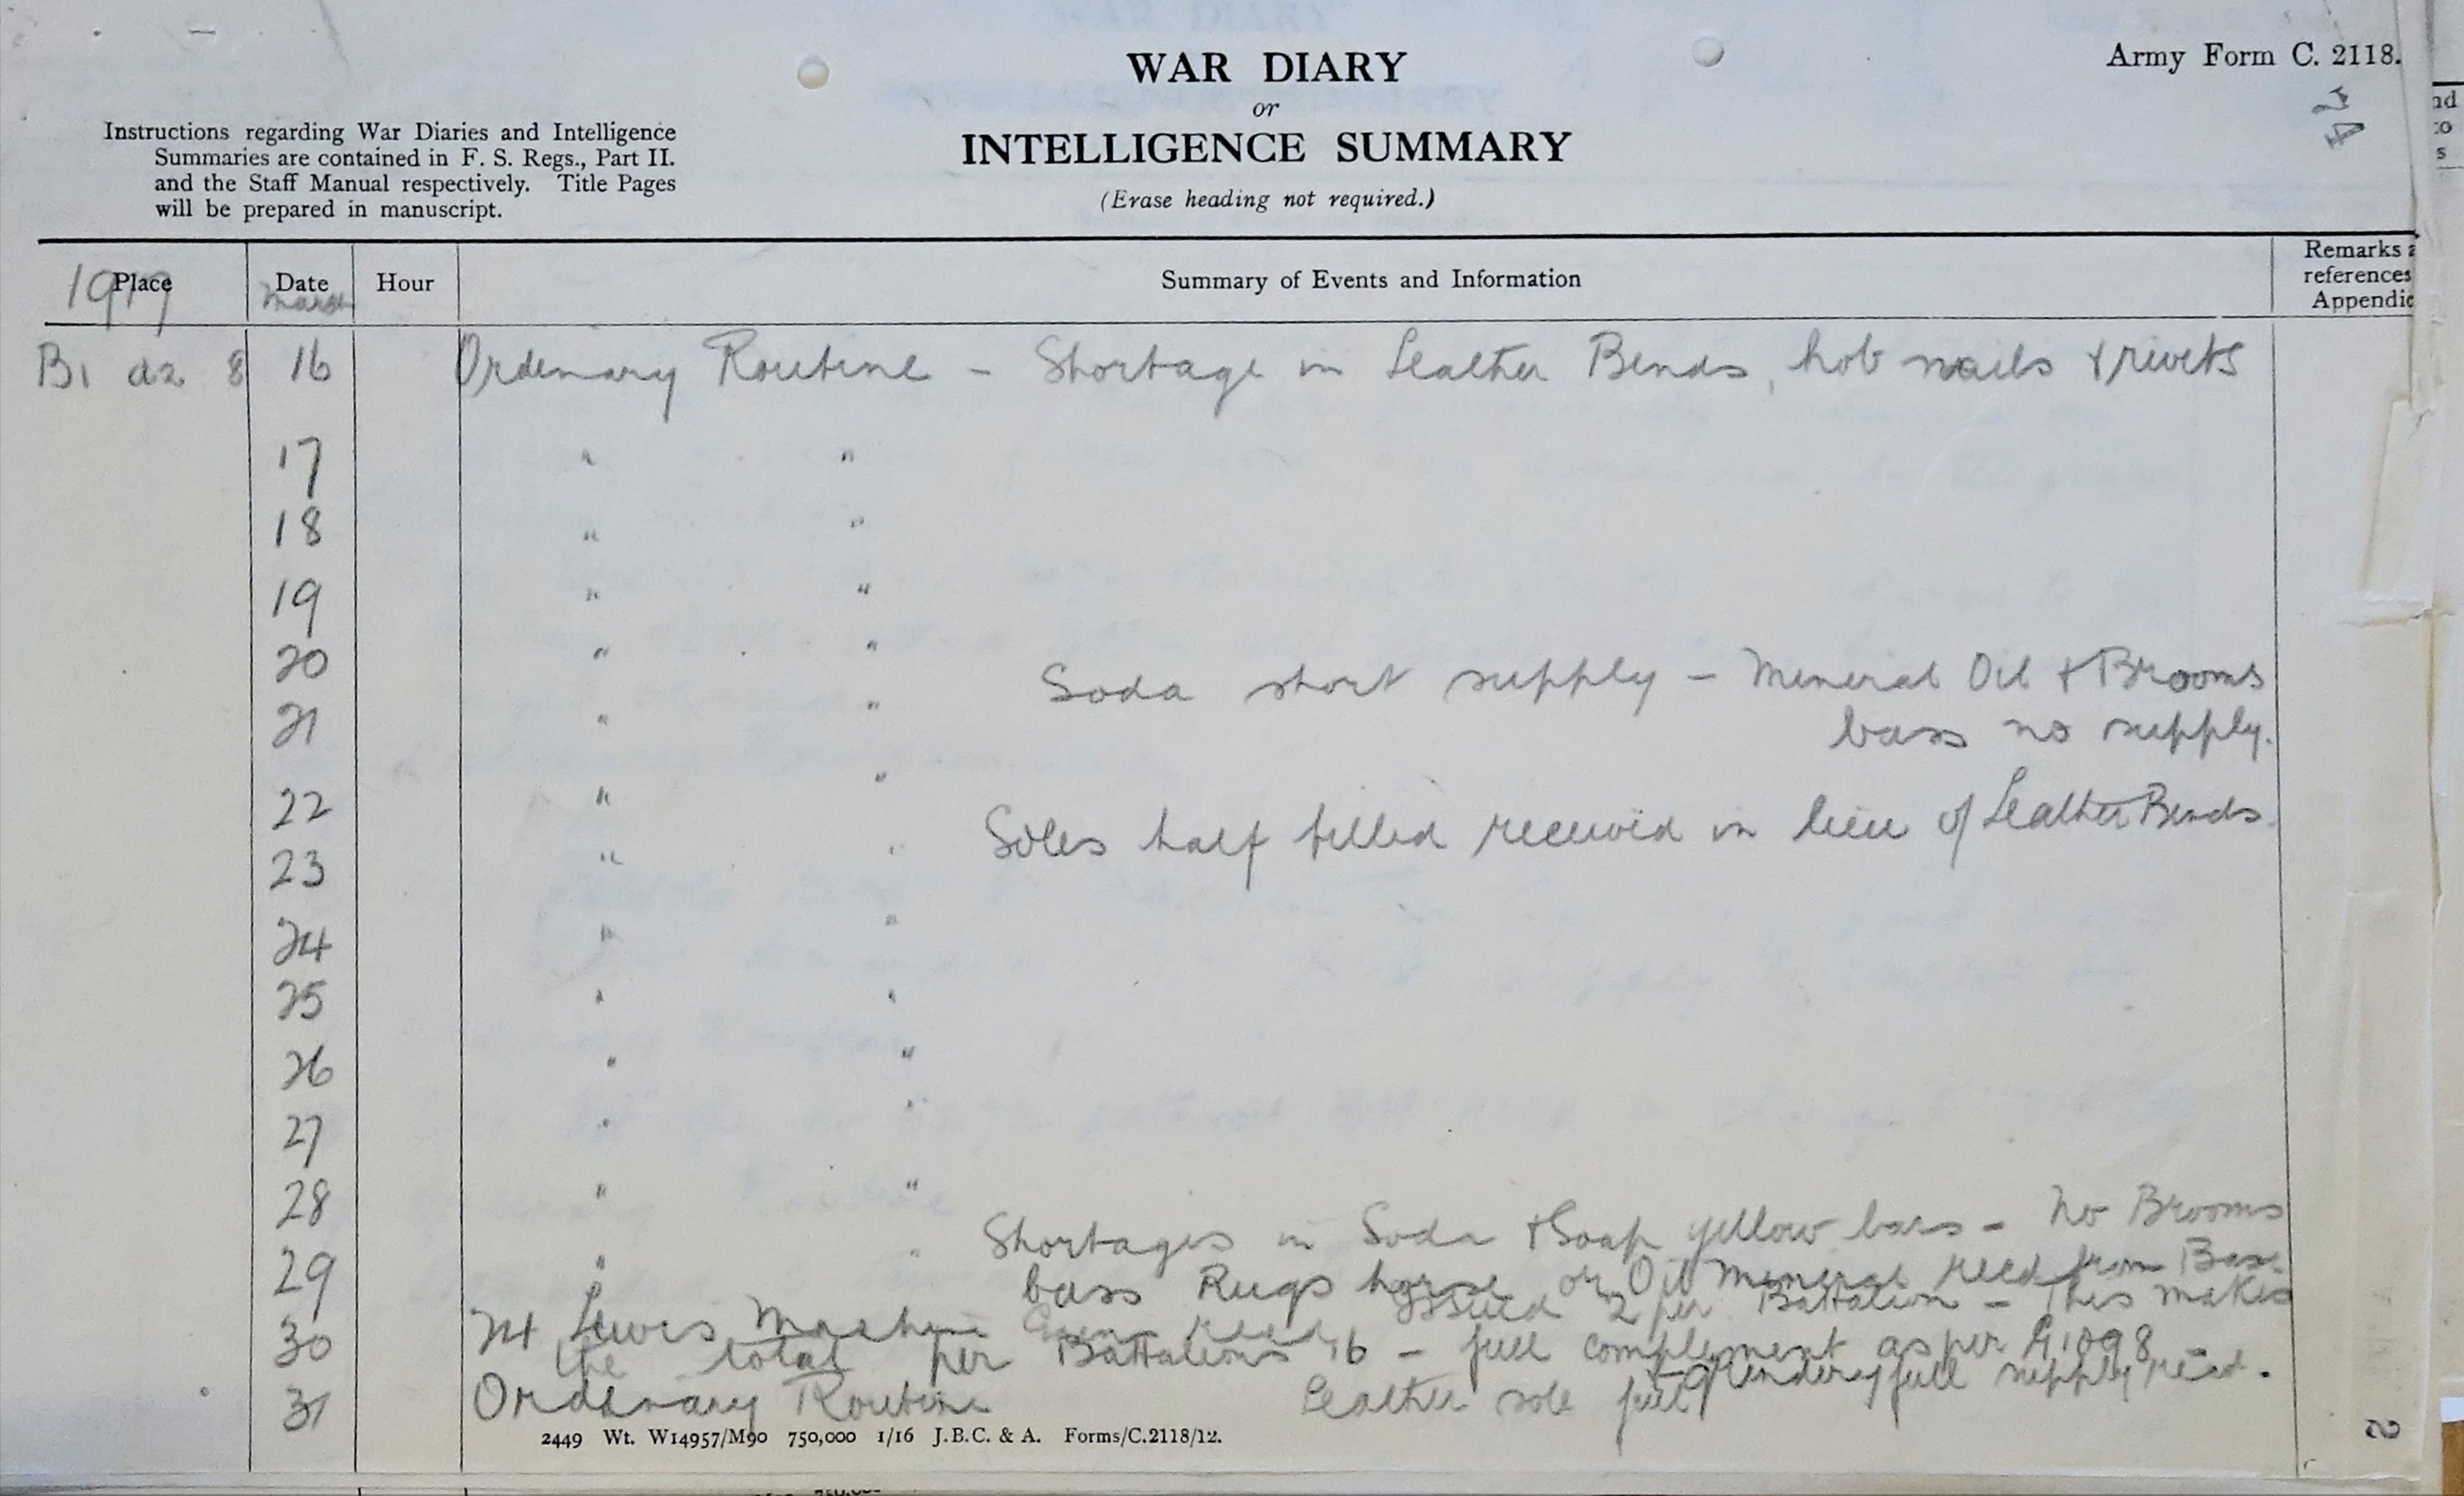 WAR DIARY
or
INTELLIGENCE SUMMARY
(Erase heading not required.)
Army Form C. 2118.
Instructions regarding War Diaries and Intelligence
Summaries are contained in F. S. Regs., Part II.
and the Staff Manual respectively. Title Pages
will be prepared in manuscript.
Place Date Hour Summary of Events and Information Remarks
references
Appendic
1917 March
B1 a2 8 16 Ordinary Routine - Shortage in Leather Bends, hob nails & rivets
17 " "
18 " "
19 " "
20 " " Soda short supply - Mineral Oil & Brooms
21 " " bass no supply.
22 " "
23 " " Soles half filled received in lieu of Leather Bends
24 " "
25 " "
26 " "
27 " "
28 " "
Shortages in Soda & Soap yellow bars - No Brooms
29 " " bass Rugs horse or Oil mineral recd from Base
24 Lewis Machine Guns recd. Issued 2 per Battalion - This makes
30 the total per Battalions 16 - full complement as per G.1098
31 Ordinary Routine Leather sole full supply recd.
2449 Wt. W14957/M90 750,000 1/16 J.B.C. & A. Forms/C.2118/12.
2